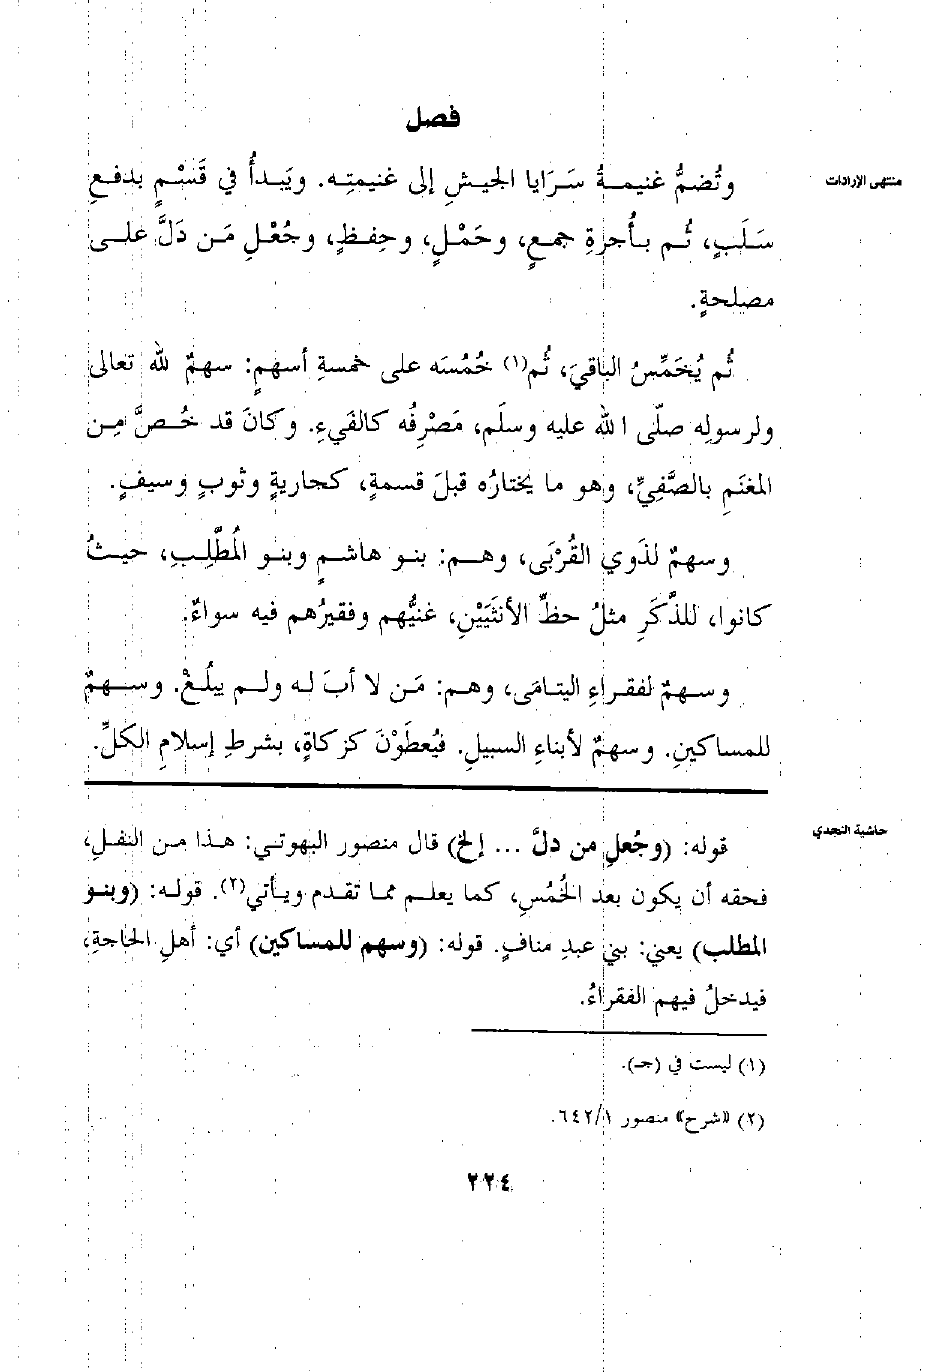 فصل
منتهى الإرادات
وتُضمُّ غنيمةُ سَرَايا الجيشِ إلى غنيمتِه. ويَبدأُ في قَسْمٍ بدفعِ
سَلَبٍ، ثُم بأُجرةِ جمعٍ، وحَمْلٍ، وحِفظٍ، وجُعْلِ مَن دَلَّ على
مصلحةٍ.
ثُم يُخَمِّسُ الباقيَ، ثُم(١) خُمُسَه على خمسةِ أسهمٍ: سهمٌ للهِ تعالى
ولرسولِه صلّى الله عليه وسلَم، مَصْرِفُه كالفَيءِ. وكانَ قد خُصَّ مِن
المغنَمِ بالصَّفِيِّ، وهو ما يختارُه قبلَ قسمةٍ، كجاريةٍ وثوبٍ وسيفٍ.
وسهمٌ لذَوي القُرْبَى، وهم: بنو هاشمٍ وبنو المُطَّلِبِ، حيثُ
كانوا، للذَّكَرِ مثلُ حظِّ الأنثَيَيْنِ، غنيُّهم وفقيرُهم فيه سواءٌ.
وسهمٌ لفقراءِ اليتامَى، وهم: مَن لا أبَ له ولم يبلُغْ. وسهمٌ
للمساكينِ. وسهمٌ لأبناءِ السبيلِ. فيُعطَوْنَ كزكاةٍ، بشرطِ إسلامِ الكلِّ.
حاشية النجدي
قوله: (وجُعلِ من دلَّ ... إلخ) قال منصور البهوتي: هذا من النفلِ،
فحقه أن يكون بعد الخُمُسِ، كما يعلم مما تقدم ويأتي(٢). قوله: (وبنو
المطلب) يعني: بني عبدِ منافٍ. قوله: (وسهم للمساكين) أي: أهلِ الحاجةِ،
فيدخلُ فيهم الفقراءُ.
(١) ليست في (جـ).
(٢) «شرح» منصور ٦٤٢/١.
٢٢٤